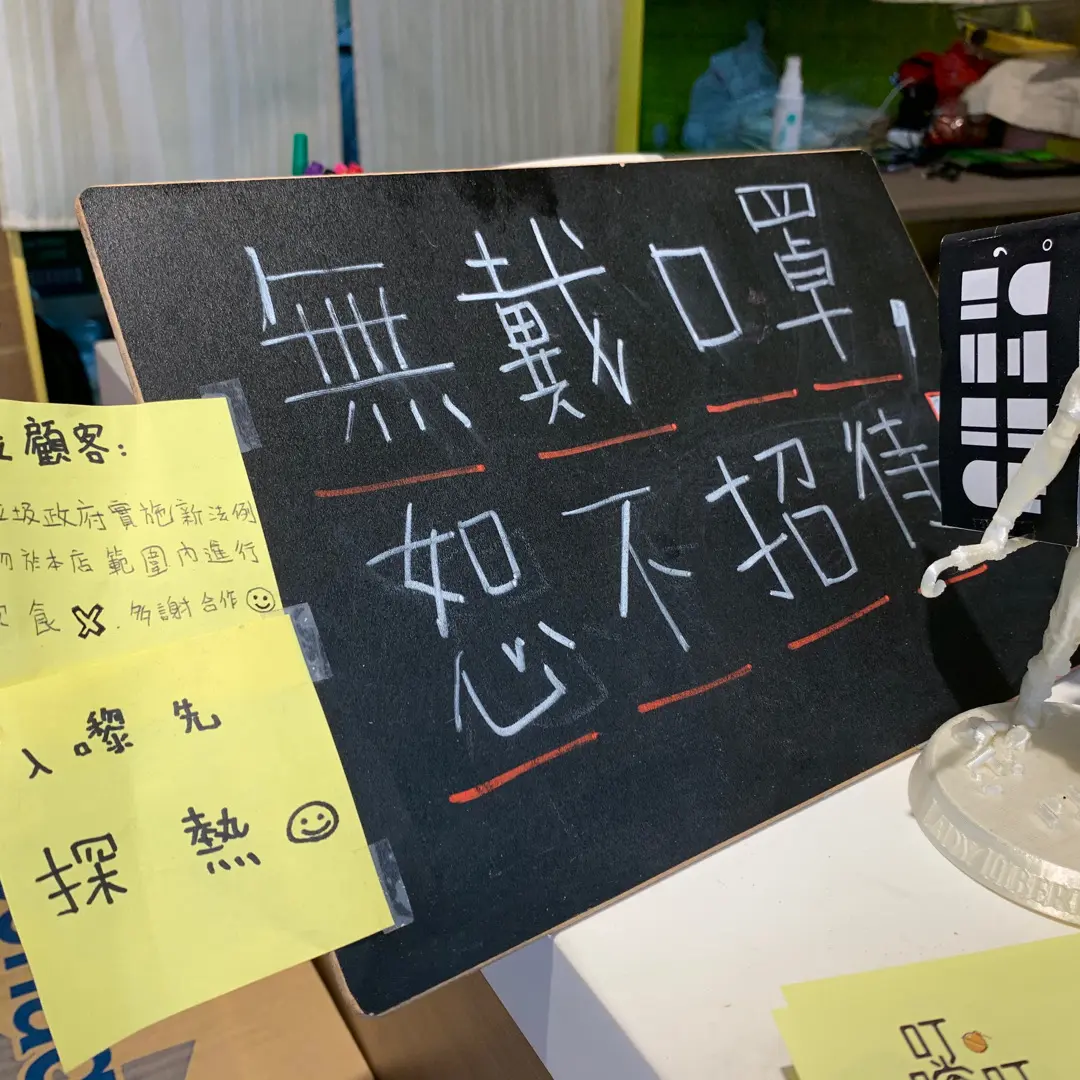 無戴口罩,
恕不招待
顧客:
圾政府實施新法例
勿於本店範圍內進行
食 多謝合作
入嚟先
探熱
LADY LIBER
叮